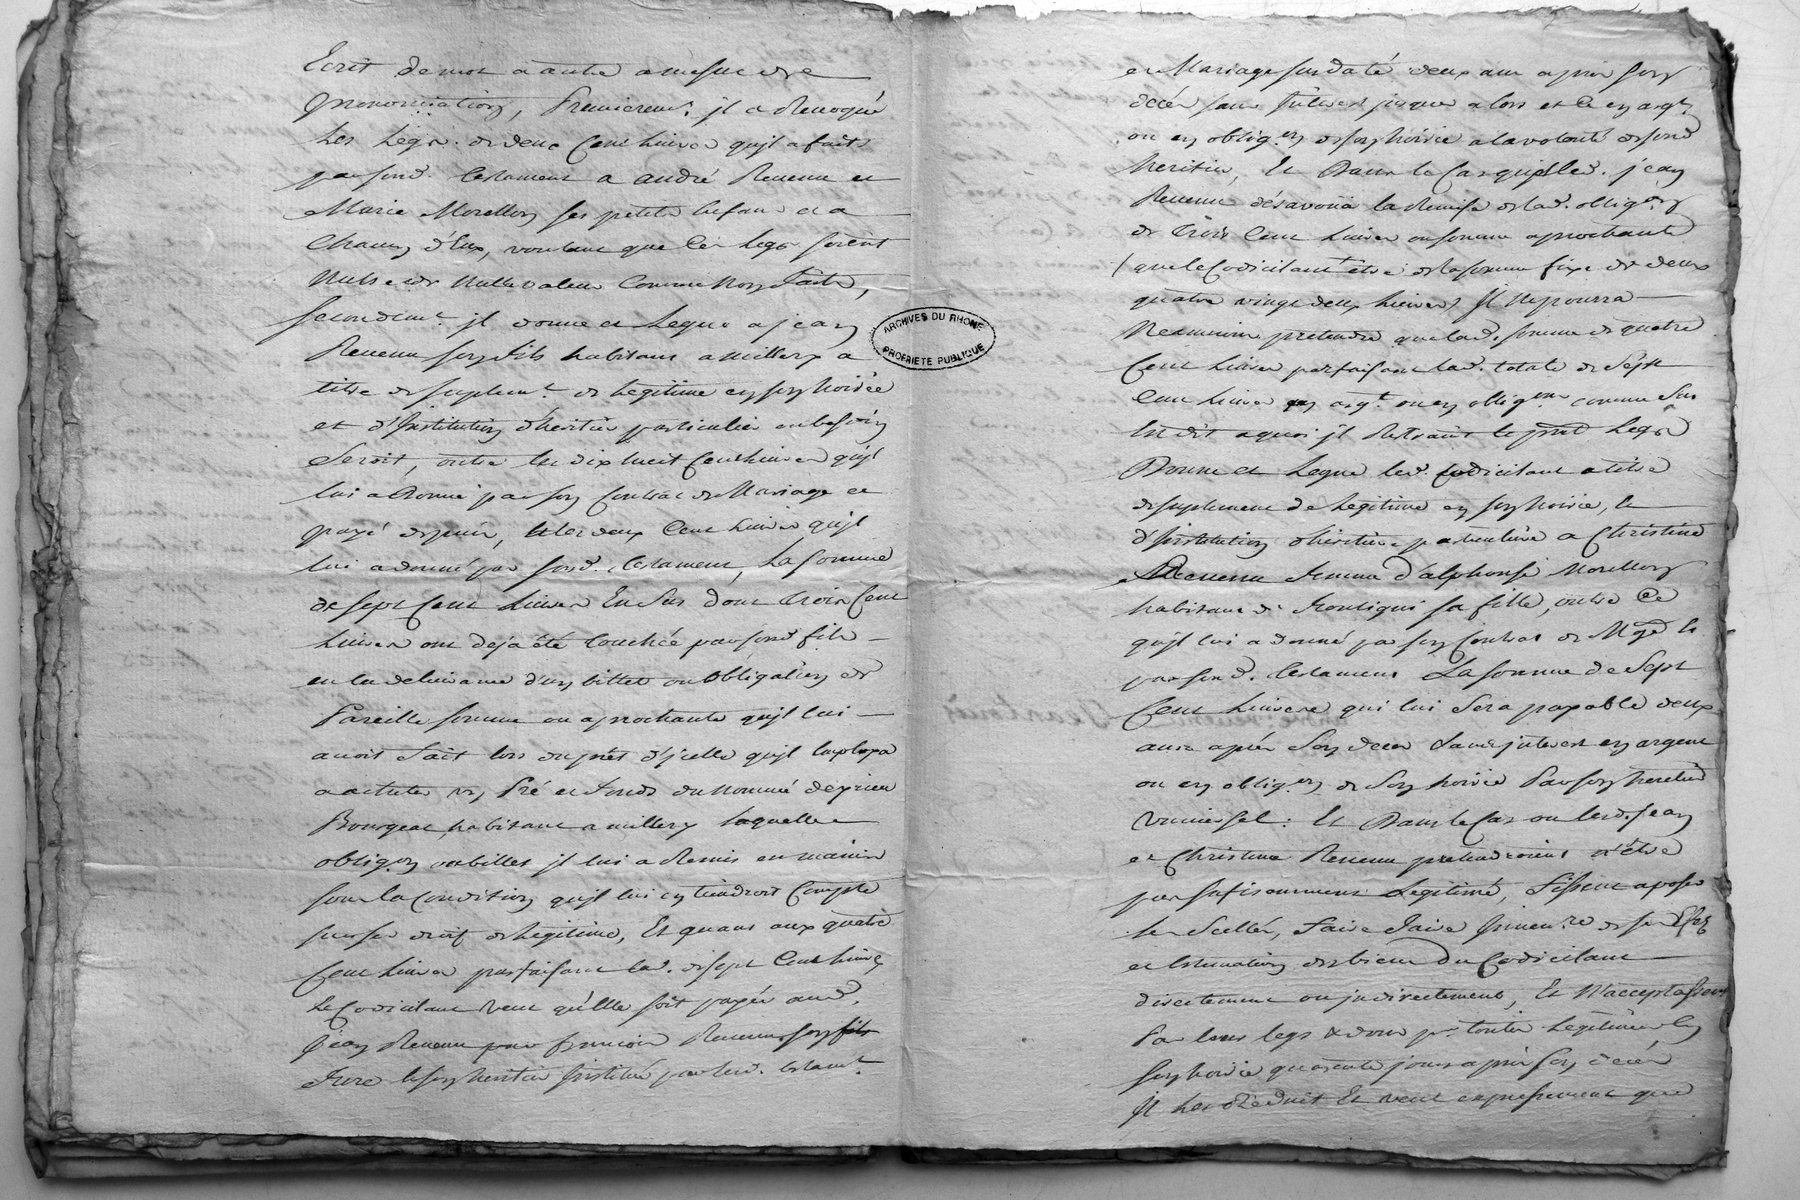 Ecrit de mot a autre a mesure de
prononciation, Premierem.t jl a Revoqué
les Legs de deux Cent Livres qu'jl a faits
par sond. testament a andré Revenu et
Marie Morellon ses petits Enfans et a
Chacun d'Eux, voulant que Ces Legs soient
nuls et de nulle valeur Comme non faits,
secondem.t jl donne et Legue a jean
Revenu son fils habitant a millery a
titre de suplem.t de Legitime en son hoirie
et d'Institution d'heritier particulier en besoin
seroit, outre les dix huit Cent Livres qu'jl
lui a Donné par son Contrat de Mariage et
payé depuis, et les deux Cent Livres qu'jl
lui a donné par sond. testament, La somme
de sept Cent Livres En sus dont trois Cent
Livres ont deja été touchée par sond fils
en la delivrance d'un billet ou obligation de
Pareille somme ou aprochante qu'jl lui
avoit fait lors du prêt d'jcelle qu'jl Employa
a acheter un Pré et fonds du nommé
Bourgeat habitant a millery laquelle
oblig.on ou billet jl lui a Remis en mains
sous la Condition qu'jl lui en tiendroit Compte
sur ses droits de Legitime, Et quant aux quatre
Cent Livres parfaisant lad. de sept Cent Livres
Le Codicilant veut qu'Elle soit payée aud.
Jean Revenu par françois Revenu son fils
frere et son heritier Institué par led. testam.t
ARCHIVES DU RHONE
PROPRIETE PUBLIQUE
et Mariage susdaté deux ans après son
décès sans Interest jusques alors et Ce en arg.t
ou en oblig.on de son hoirie a la volonté de sond
heritier, Et Dans le Cas qu'Elled. jean
Revenu désavoua la Remise de lad. oblig.on
de trois Cent Livres ou somme aprochante
(que le Codicilant être de la somme fixe de deux
quatre vingt deux Livres) Il ne pourra
Neanmoins pretendre que lad. somme de quatre
Cent Livres parfaisant lad. totale de Sept
Cent Livres en arg.t ou en oblig.on comme Sus
Est dit a quoi jl Restraint le p.nt Legs
Donne et Legue led. Codicilant a titre
de suplement de Legitime en son hoirie, et
d'Institution d'héritiere particulière a Christine
Revenu femme d'alphonse Morellon
habitant de sa fille, outre Ce
qu'jl lui a donné par son Contrat de M.ge Et
par sond. testament La somme de Sept
Cent Livres qui lui Sera payable deux
ans après Son decès Sans jnterest en argent
ou en oblig.on de Son hoirie Par son heritier
Universel : Et Dans le Cas ou lesd. Jean
et Christine Revenu pretendroient n'être
pas sufisamment Legitimé, fissent aposer
les Scellés, faire faire Inven.re de ses Effets
et Estimation des biens Du Codicilant
directement ou jndirectement, Et N'acceptassent
Pas leurs legs & dons p.r toutes Legitimes En
Son hoirie quarante jours après son decès
Il les Réduit Et veut expressement que